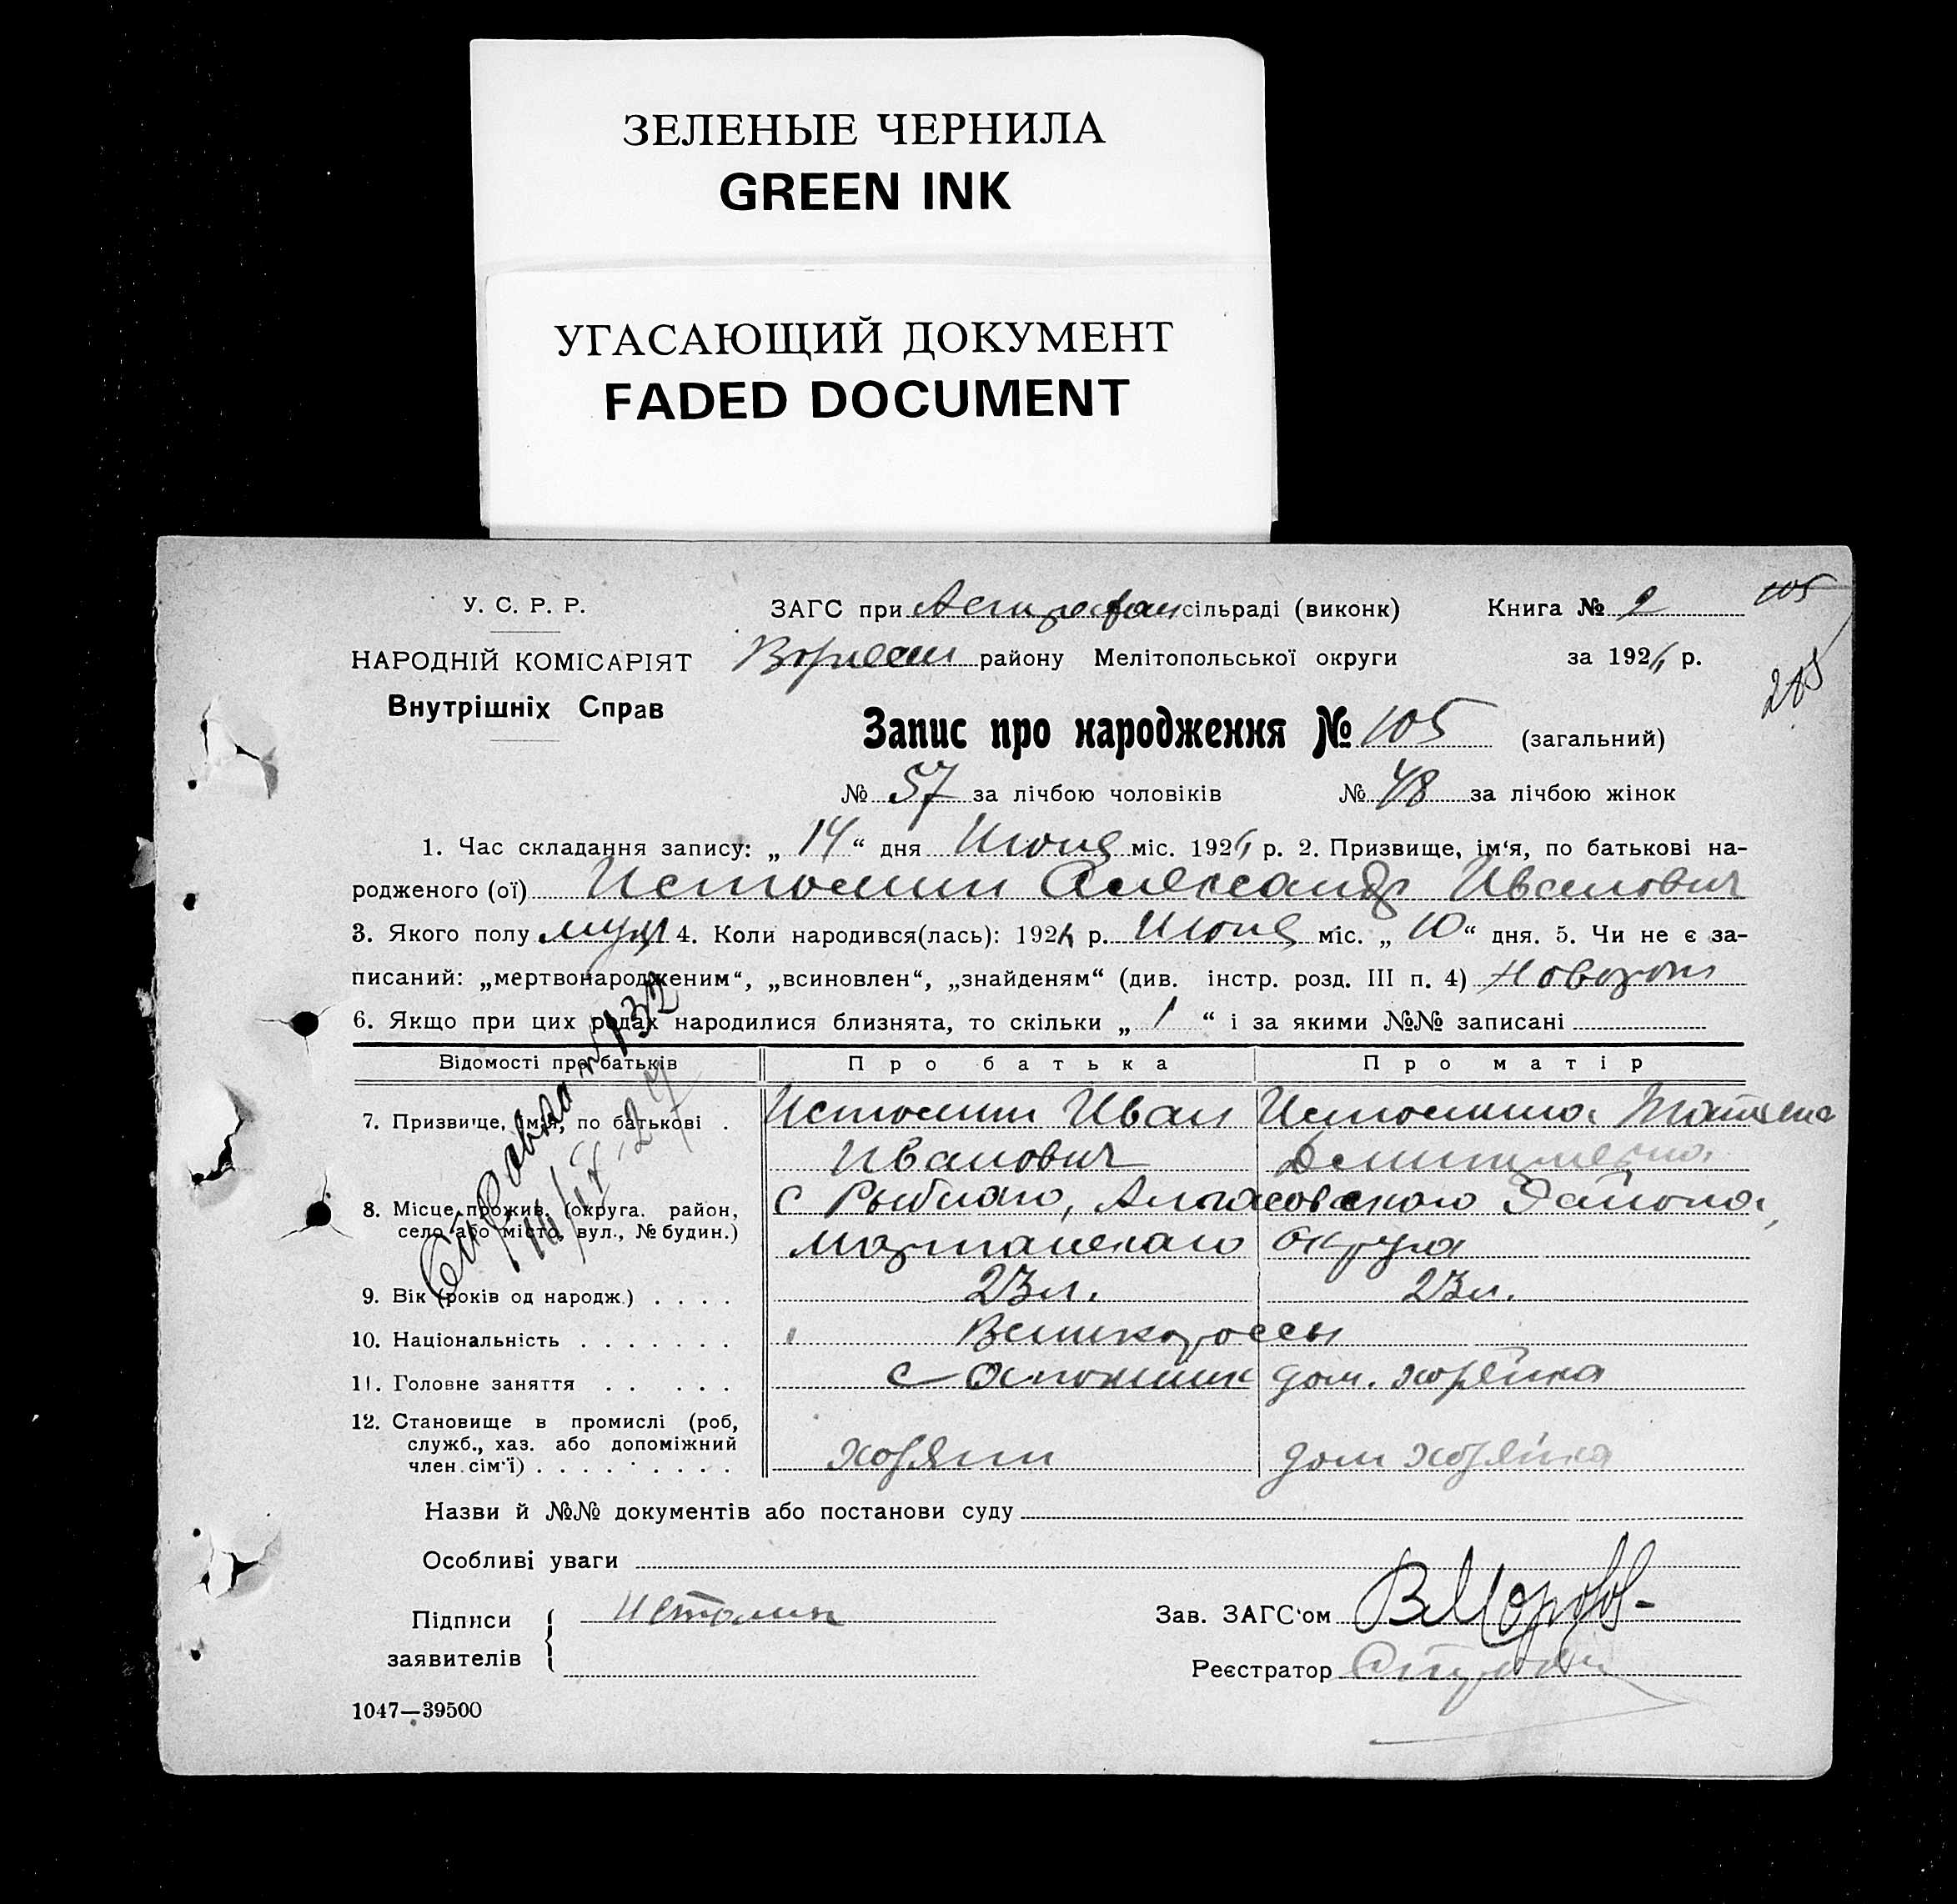 ЗЕЛЕНЫЕ ЧЕРНИЛА
GREEN INK
УГАСАЮЩИЙ ДОКУМЕНТ
FADED DOCUMENT
У. С. Р. Р.
НАРОДНІЙ КОМІСАРІЯТ
Внутрішніх Справ
ЗАГС при сільраді (виконк) Книга № 2 105
району Мелітопольської округи за 192 р.
205
Запис про народження № 105 (загальний)
№ 57 за лічбою чоловіків № 48 за лічбою жінок
1. Час складання запису: „ 14 “ дня Июня міс. 192 р. 2. Призвище, ім‘я, по батькові на-
родженого (ої) Истомин Александр Иванович
3. Якого полу муж 4. Коли народився(лась): 192 р. Июня міс. „ 10 “ дня. 5. Чи не є за-
писаний: „мертвонародженим“, „всиновлен“, „знайденям“ (див. інстр. розд. III п. 4)
6. Якщо при цих родах народилися близнята, то скільки „ 1 “ і за якими №№ записані
Відомості про батьків Про батька Про матір
7. Призвище, ім‘я, по батькові . Истомин Иван Истомина Татьяна
Иванович
8. Місце прожив. (округа. район, с Рыбного, района,
село або місто, вул., № будин.) округа
9. Вік (років од народж.) . . . . 23 л. 23 л.
10. Національність . . . . . . . Великороссы
11. Головне заняття . . . . . дом. хозяйка
12. Становище в промислі (роб,
служб., хаз. або допоміжний
член. сім‘ї) . . . . . . . . . хозяин дом хозяйка
Справка № 132
Назви й №№ документів або постанови суду
Особливі уваги
Підписи заявителів Истомин
Зав. ЗАГС‘ом
Реєстратор
1047—39500